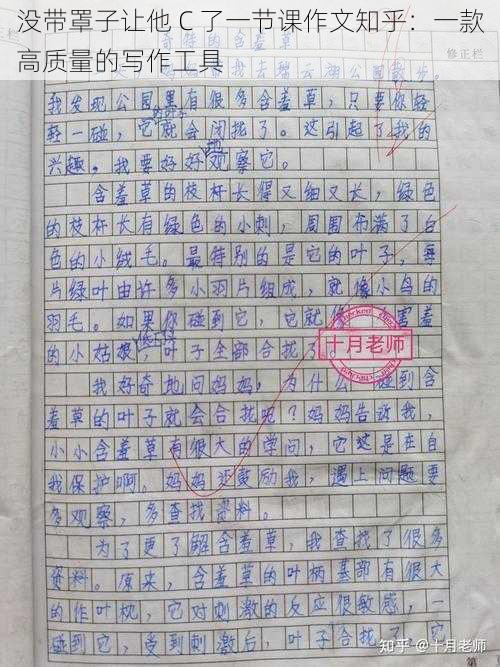 没带罩子让他 C 了一节课作文知乎：一款
高质量的写作工具
修正栏
特的含羞草
去碧云湖公园散步。
我发现公园里有很多含羞草，只要你轻
轻一碰，它就会闭拢了。这引起了我的
兴趣。我要好好观察它。
含羞草的枝杆长得又细又长，绿色
的枝杆长有绿色的小刺，周围布满了白
色的小绒毛。最特别的是它的叶子，每
片绿叶由许多小羽片组成，就像小鸟的
羽毛。如果你碰到它，它就像 害羞
的小姑娘，叶子全部合拢了
十月老师
我好奇地问妈妈，为什么 碰到含
羞草的叶子就会合拢呢？妈妈告诉我，
小小含羞草有很大的学问，它这是在自
我保护啊。妈妈还鼓励我，遇上问题要
多观察，多查找资料。
为了更了解含羞草，我查找了很多
资料。原来，含羞草的叶柄基部有很大
的作叶枕，它对刺激的反应很敏感，一
碰到它，受到刺激后，叶子合拢了。它
知乎 @十月老师
第